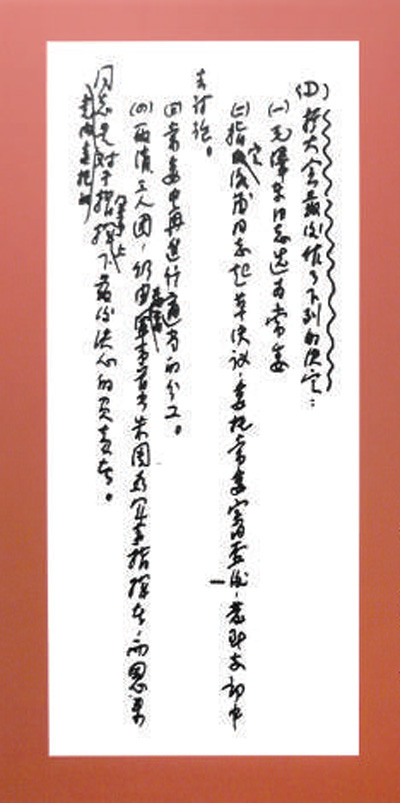 (D) 扩大会最后作了下列的决定:
(一)毛泽东同志选为常委
(二)指定洛甫同志起草决议,委托常委审查后,发到支部中
去讨论。
(三)常委中再进行适当的分工。
(四)取消三人团,仍由最高军事首长朱周为军事指挥者,而恩来
同志是党内委托的对于指挥军事上下最后决心的负责者。